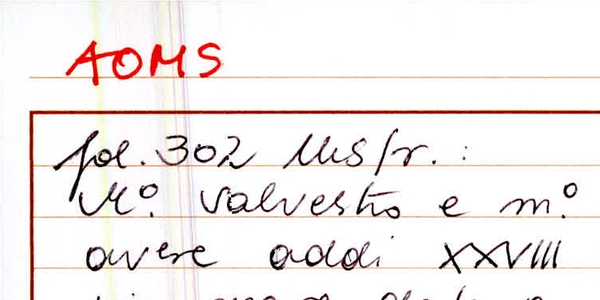 AOMS
fol. 302
M°. valvestro e m°
avere addi XXVIII